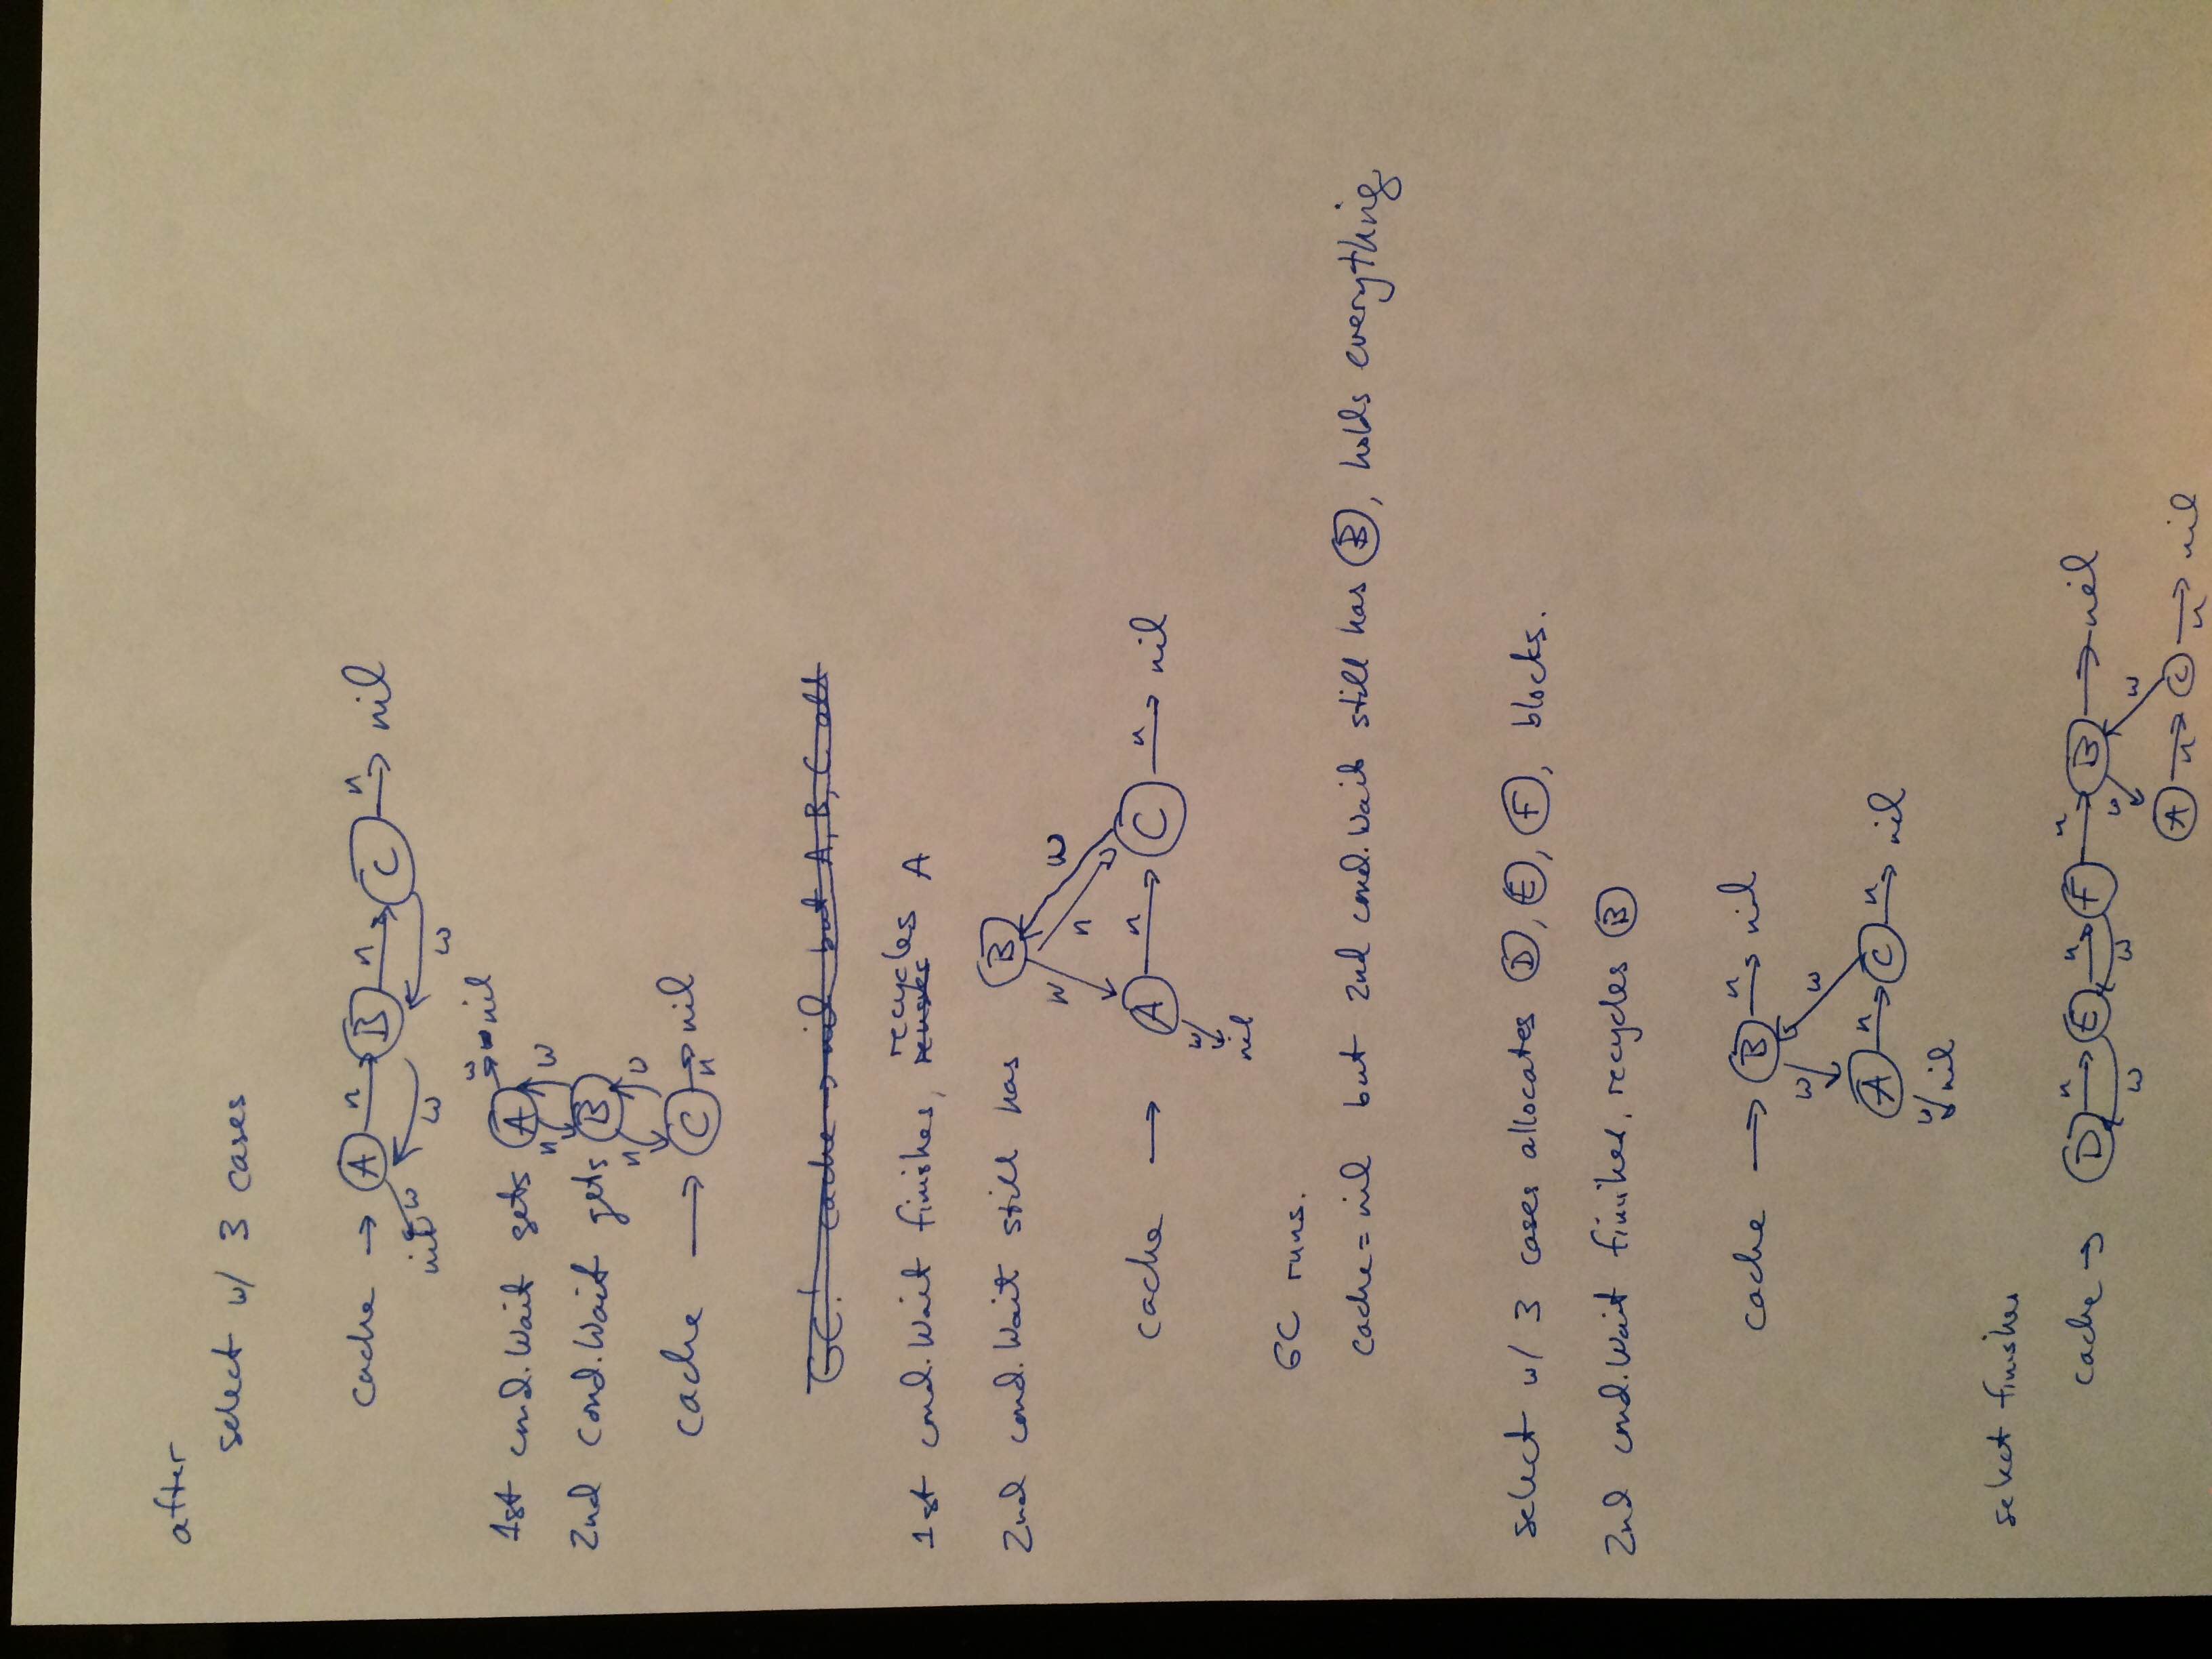 after
select w/ 3 cases
cache → A n→ B n→ C n→ nil
nil w w w
1st cond.Wait gets A w→ nil
n w
2nd cond.Wait gets B
n w
cache → C n→ nil
GC! cache → nil but A, B, C all
1st cond.Wait finishes, recycles A
2nd cond.Wait still has B
w n w
cache → A n→ C n→ nil
w nil
GC runs.
cache = nil but 2nd cond.Wait still has B, holds everything
select w/ 3 cases allocates D, E, F, blocks.
2nd cond.Wait finishes, recycles B
cache → B n→ nil
w w
A n→ C n→ nil
w nil
select finishes
cache → D n→ E n→ F n→ B → nil
w w w w
A n→ C n→ nil